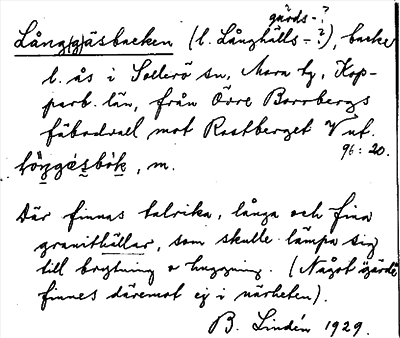 gärds-?
Lång(g)äsbacken (l. Långhälls-?), backe
l. ås i Sollerö sn, Mora tg, Kop-
parb. län, från Övre Borrbergs
fäbodvall mot Rostberget V ut.
96: 20.
m.
Där finnas talrika, långa och fina
granithällar, som skulle lämpa sig
till brytning o huggning. (Något gärde
finnes däremot ej i närheten).
B. Lindén 1929.